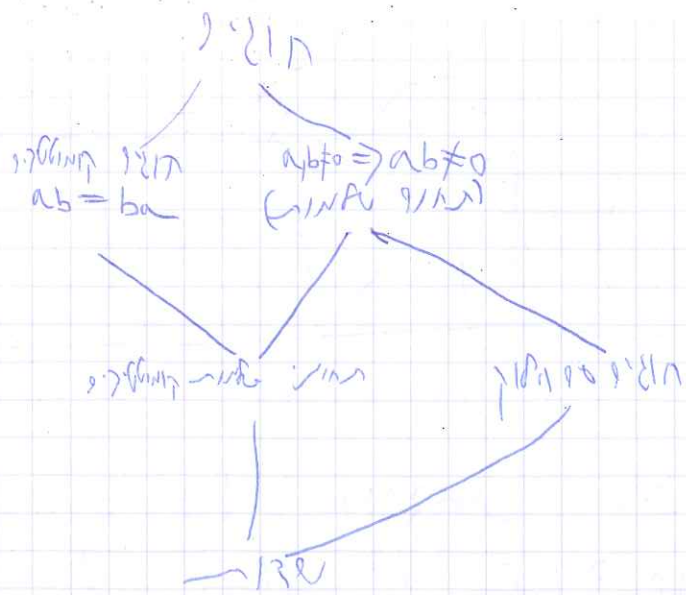 חוגים
חוגים קומוטטיביים
ab = ba
a,b≠0 ⇒ ab≠0
(תחומי שלמות)
תחומי שלמות קומוטטיביים
חוגים עם חילוק
שדות